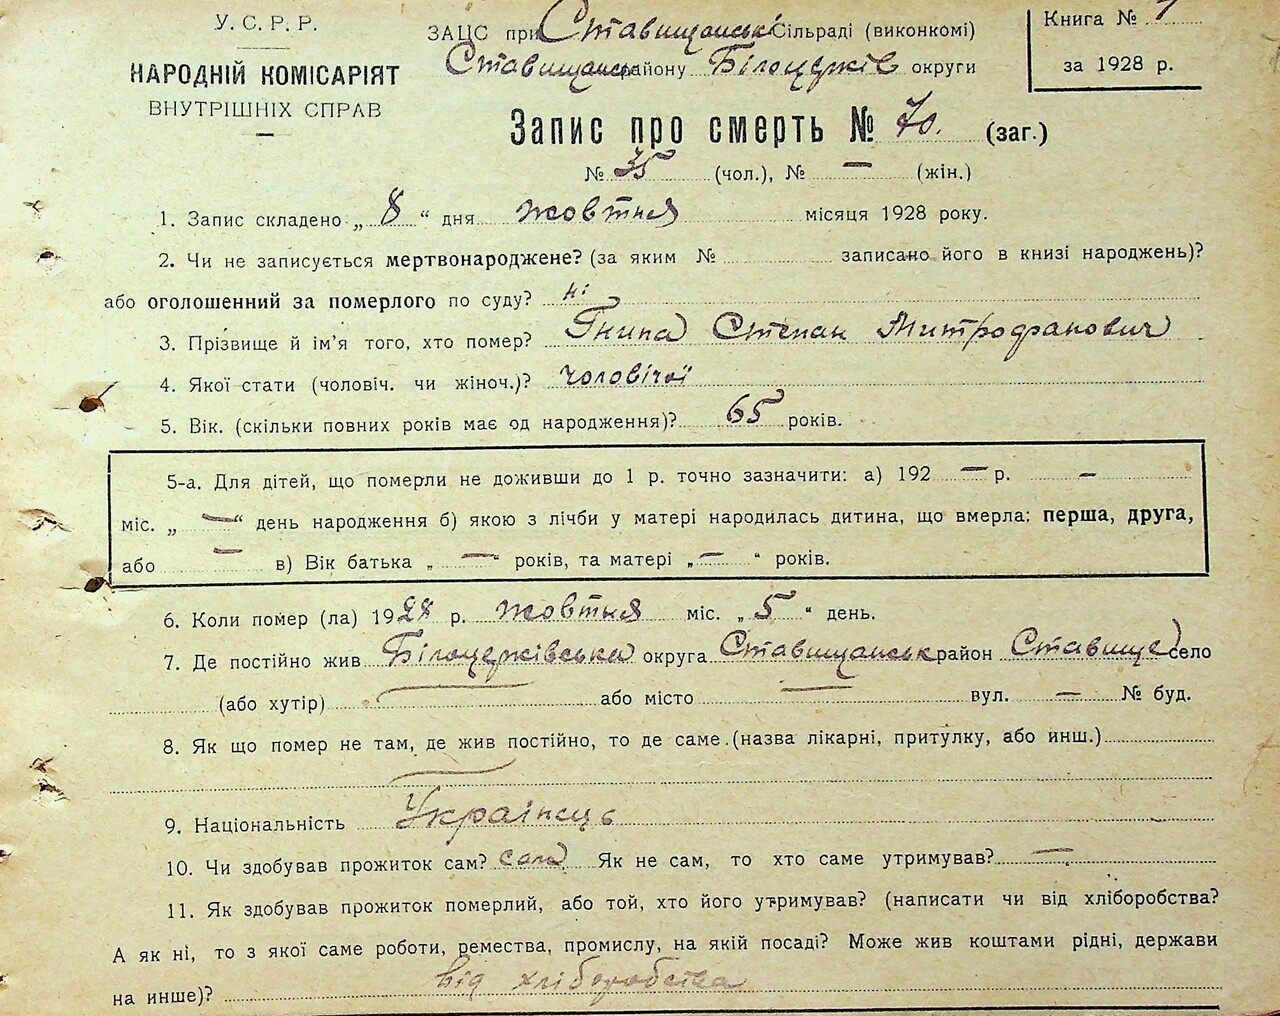 У. С. Р. Р.
НАРОДНІЙ КОМІСАРІЯТ
ВНУТРІШНІХ СПРАВ
ЗАЦС при Ставищанськ Сільраді (виконкомі)
Ставищанськ району Білоцерків округи
Книга № 1
за 1928 р.
Запис про смерть № 70. (заг.)
№ 35 (чол.), № — (жін.)
1. Запис складено „ 8 “ дня жовтня місяця 1928 року.
2. Чи не записується мертвонароджене? (за яким № записано його в книзі народжень)?
або оголошенний за померлого по суду? ні
3. Прізвище й ім'я того, хто помер? Гнипа Степан Митрофанович
4. Якої стати (чоловіч. чи жіноч.)? чоловічої
5. Вік. (скільки повних років має од народження)? 65 років.
5-а. Для дітей, що померли не доживши до 1 р. точно зазначити: а) 192 — р. —
міс. „ — “ день народження б) якою з лічби у матері народилась дитина, що вмерла: перша, друга,
або — в) Вік батька „ — “ років, та матері „ — “ років.
6. Коли помер (ла) 1928 р. жовтня міс. „ 5 “ день.
7. Де постійно жив Білоцерківська округа Ставищанськ район Ставище село
(або хутір) — або місто — вул. — № буд.
8. Як що помер не там, де жив постійно, то де саме. (назва лікарні, притулку, або инш.)
—
9. Національність Українець
10. Чи здобував прожиток сам? сам Як не сам, то хто саме утримував? —
11. Як здобував прожиток померлий, або той, хто його утримував? (написати чи від хліборобства?
А як ні, то з якої саме роботи, ремества, промислу, на якій посаді? Може жив коштами рідні, держави
на инше)? від хліборобства